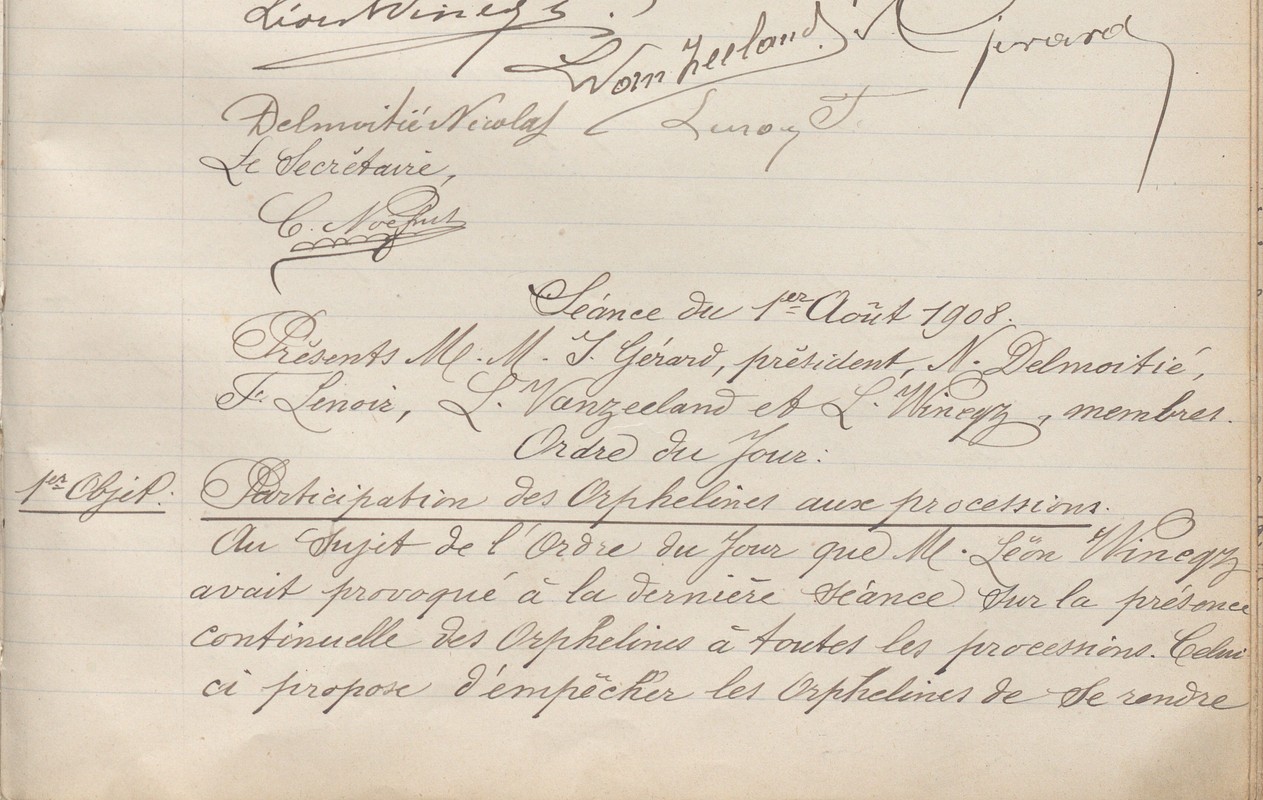 Léon Wineqz
L Vanzeeland. Gérard
Delmoitié Nicolas Lenoir F.
Le Secrétaire,
C. Noë
Séance du 1er Août 1908.
Présents M. M. J. Gérard, président, N. Delmoitié,
F. Lenoir, L. Vanzeeland et L. Wineqz, membres.
Ordre du Jour:
1er Objet: Participation des Orphelines aux processions.
Au Sujet de l'Ordre du Jour que M. Léon Wineqz
avait provoqué à la dernière Séance Sur la présence
continuelle des Orphelines à toutes les processions. Celui
ci propose d'empêcher les Orphelines de Se rendre